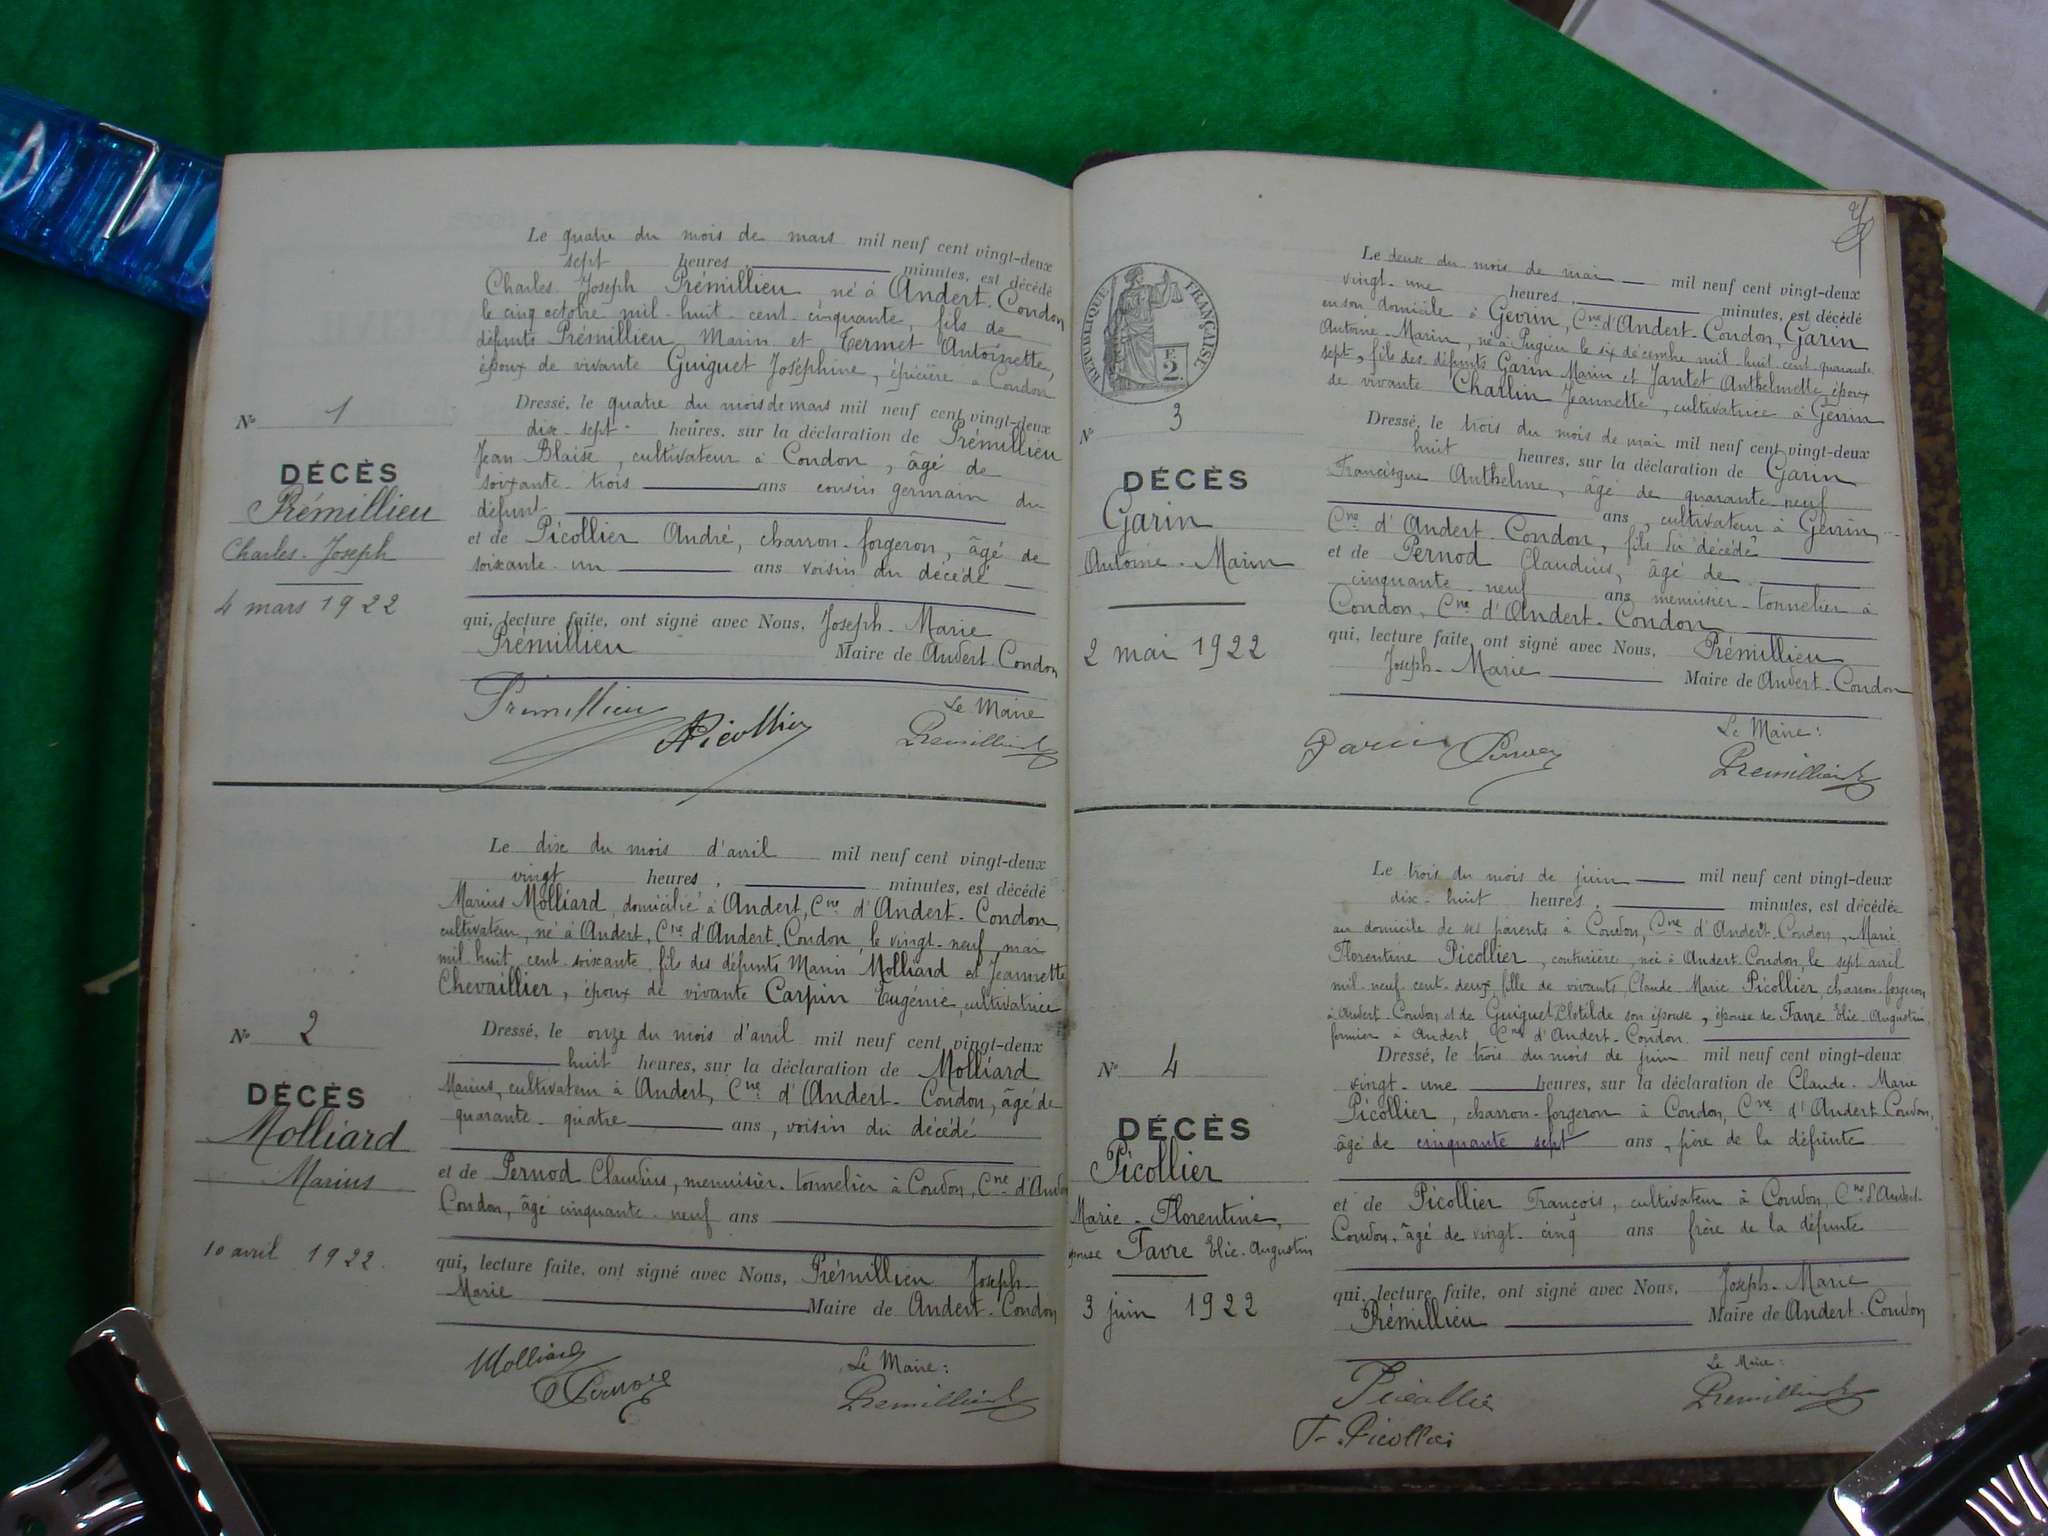 Le quatre du mois de mars mil neuf cent vingt-deux
sept heures, minutes, est décédé
Charles Joseph Prémillieu né à Andert-Condon
le cinq octobre mil-huit-cent-cinquante, fils de
défunts Prémillieu Marin et Termet Antoinette,
époux de vivante Guiguet Joséphine, épicière à Condon
Nº 1
DÉCÈS
Prémillieu
Charles-Joseph
4 mars 1922
Dressé, le quatre du mois de mars mil neuf cent vingt-deux
dix-sept heures, sur la déclaration de Prémillieu
Jean Blaise, cultivateur à Condon, âgé de
soixante-trois ans cousin germain du
défunt
et de Picollier André, charron-forgeron, âgé de
soixante-un ans voisin du décédé
qui, lecture faite, ont signé avec Nous, Joseph-Marie
Prémillieu Maire de Andert-Condon
Le Maire
Prémillieu
Picollier
Premillieu
Le dix du mois d'avril mil neuf cent vingt-deux
vingt heures, minutes, est décédé
Marius Molliard, domicilié à Andert, Cne d'Andert-Condon,
cultivateur, né à Andert, Cne d'Andert-Condon, le vingt-neuf mai
mil huit cent soixante, fils des défunts Marin Molliard et Jeannette
Chevaillier, époux de vivante Carpin Eugénie, cultivatrice
Nº 2
DÉCÈS
Molliard
Marius
10 avril 1922.
Dressé, le onze du mois d'avril mil neuf cent vingt-deux
huit heures, sur la déclaration de Molliard
Marius, cultivateur à Andert, Cne d'Andert-Condon, âgé de
quarante-quatre ans, voisin du décédé
et de Pernod Claudius, menuisier-tonnelier à Condon, Cne d'Andert
Condon, âgé cinquante-neuf ans
qui, lecture faite, ont signé avec Nous, Prémillieu Joseph-
Marie Maire de Andert-Condon
Le Maire:
Molliard
Pernod
Premillieu
Le deux du mois de mai mil neuf cent vingt-deux
vingt-une heures, minutes, est décédé
en son domicile à Gevrin, Cne d'Andert-Condon, Garin
Antoine-Marin, né à Pugieu le six décembre mil-huit-cent-quarante
sept, fils des défunts Garin Marin et Jantet Anthelmette, époux
de vivante Charlin Jeannette, cultivatrice à Gevrin
RÉPUBLIQUE FRANÇAISE
E
2
Nº 3
DÉCÈS
Garin
Antoine-Marin
2 mai 1922
Dressé, le trois du mois de mai mil neuf cent vingt-deux
huit heures, sur la déclaration de Garin
Francisque Anthelme, âgé de quarante-neuf
ans, cultivateur à Gevrin,
Cne d'Andert-Condon, fils du décédé
et de Pernod Claudius, âgé de
cinquante-neuf ans menuisier-tonnelier à
Condon, Cne d'Andert-Condon
qui, lecture faite, ont signé avec Nous, Prémillieu
Joseph-Marie Maire de Andert-Condon
Le Maire:
Garin
Premillieu
Le trois du mois de juin mil neuf cent vingt-deux
dix-huit heures, minutes, est décédée
au domicile de ses parents à Condon, Cne d'Andert-Condon, Marie
Florentine Picollier, couturière, née à Andert-Condon, le sept avril
mil-neuf-cent-deux, fille de vivants, Claude Marie Picollier, charron-forgeron
à Andert-Condon et de Guiguet Clotilde son épouse, épouse de Favre Elie-Augustin,
fermier à Andert Cne d'Andert-Condon.
Nº 4
DÉCÈS
Picollier
Marie-Florentine,
épouse Favre Elie-Augustin
3 juin 1922
Dressé, le trois du mois de juin mil neuf cent vingt-deux
vingt-une heures, sur la déclaration de Claude-Marie
Picollier, charron-forgeron à Condon, Cne d'Andert-Condon,
âgé de cinquante sept ans, père de la défunte
et de Picollier François, cultivateur à Condon, Cne d'Andert-
Condon, âgé de vingt-cinq ans frère de la défunte
qui, lecture faite, ont signé avec Nous, Joseph-Marie
Prémillieu Maire de Andert-Condon
Le Maire:
Picollier
Premillieu
F. Picollier